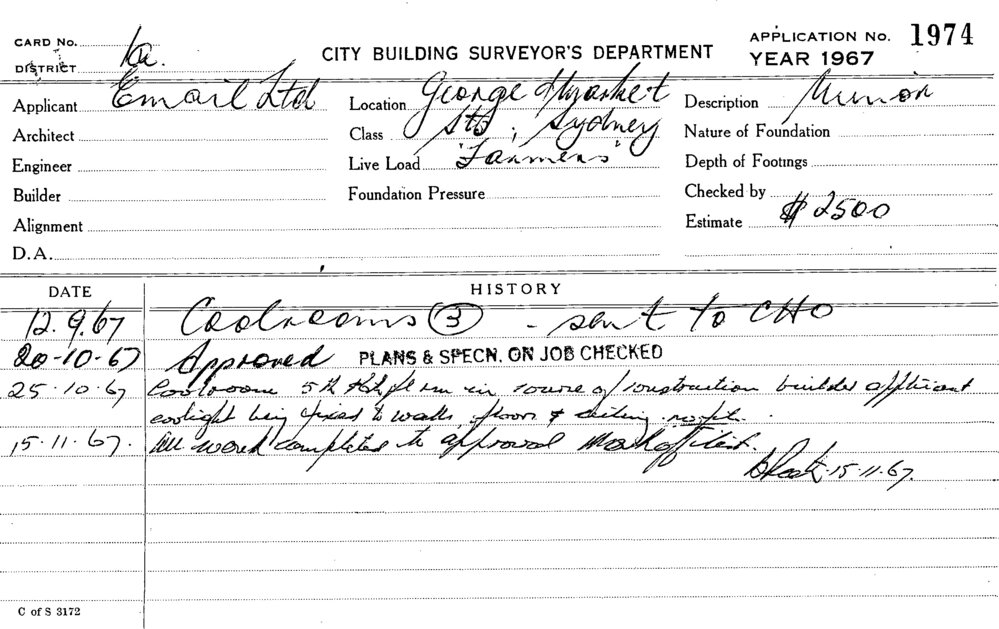 CARD No.
DISTRICT 1a.
CITY BUILDING SURVEYOR'S DEPARTMENT
APPLICATION No. 1974
YEAR 1967
Applicant Email Ltd
Architect
Engineer
Builder
Alignment
D.A.
Location George & Market
Class Sts, Sydney
Live Load "Farmers"
Foundation Pressure
Description Minor
Nature of Foundation
Depth of Footings
Checked by
Estimate $2500
DATE HISTORY
12.9.67 Coolrooms (3) - sent to CHO
20-10-67 Approved PLANS & SPECN. ON JOB CHECKED
25.10.67 Coolroom 5th in course of construction builder applicant
being fixed to walls, floor & ceiling
15.11.67. All work completed to approval
15.11.67.
C of S 3172